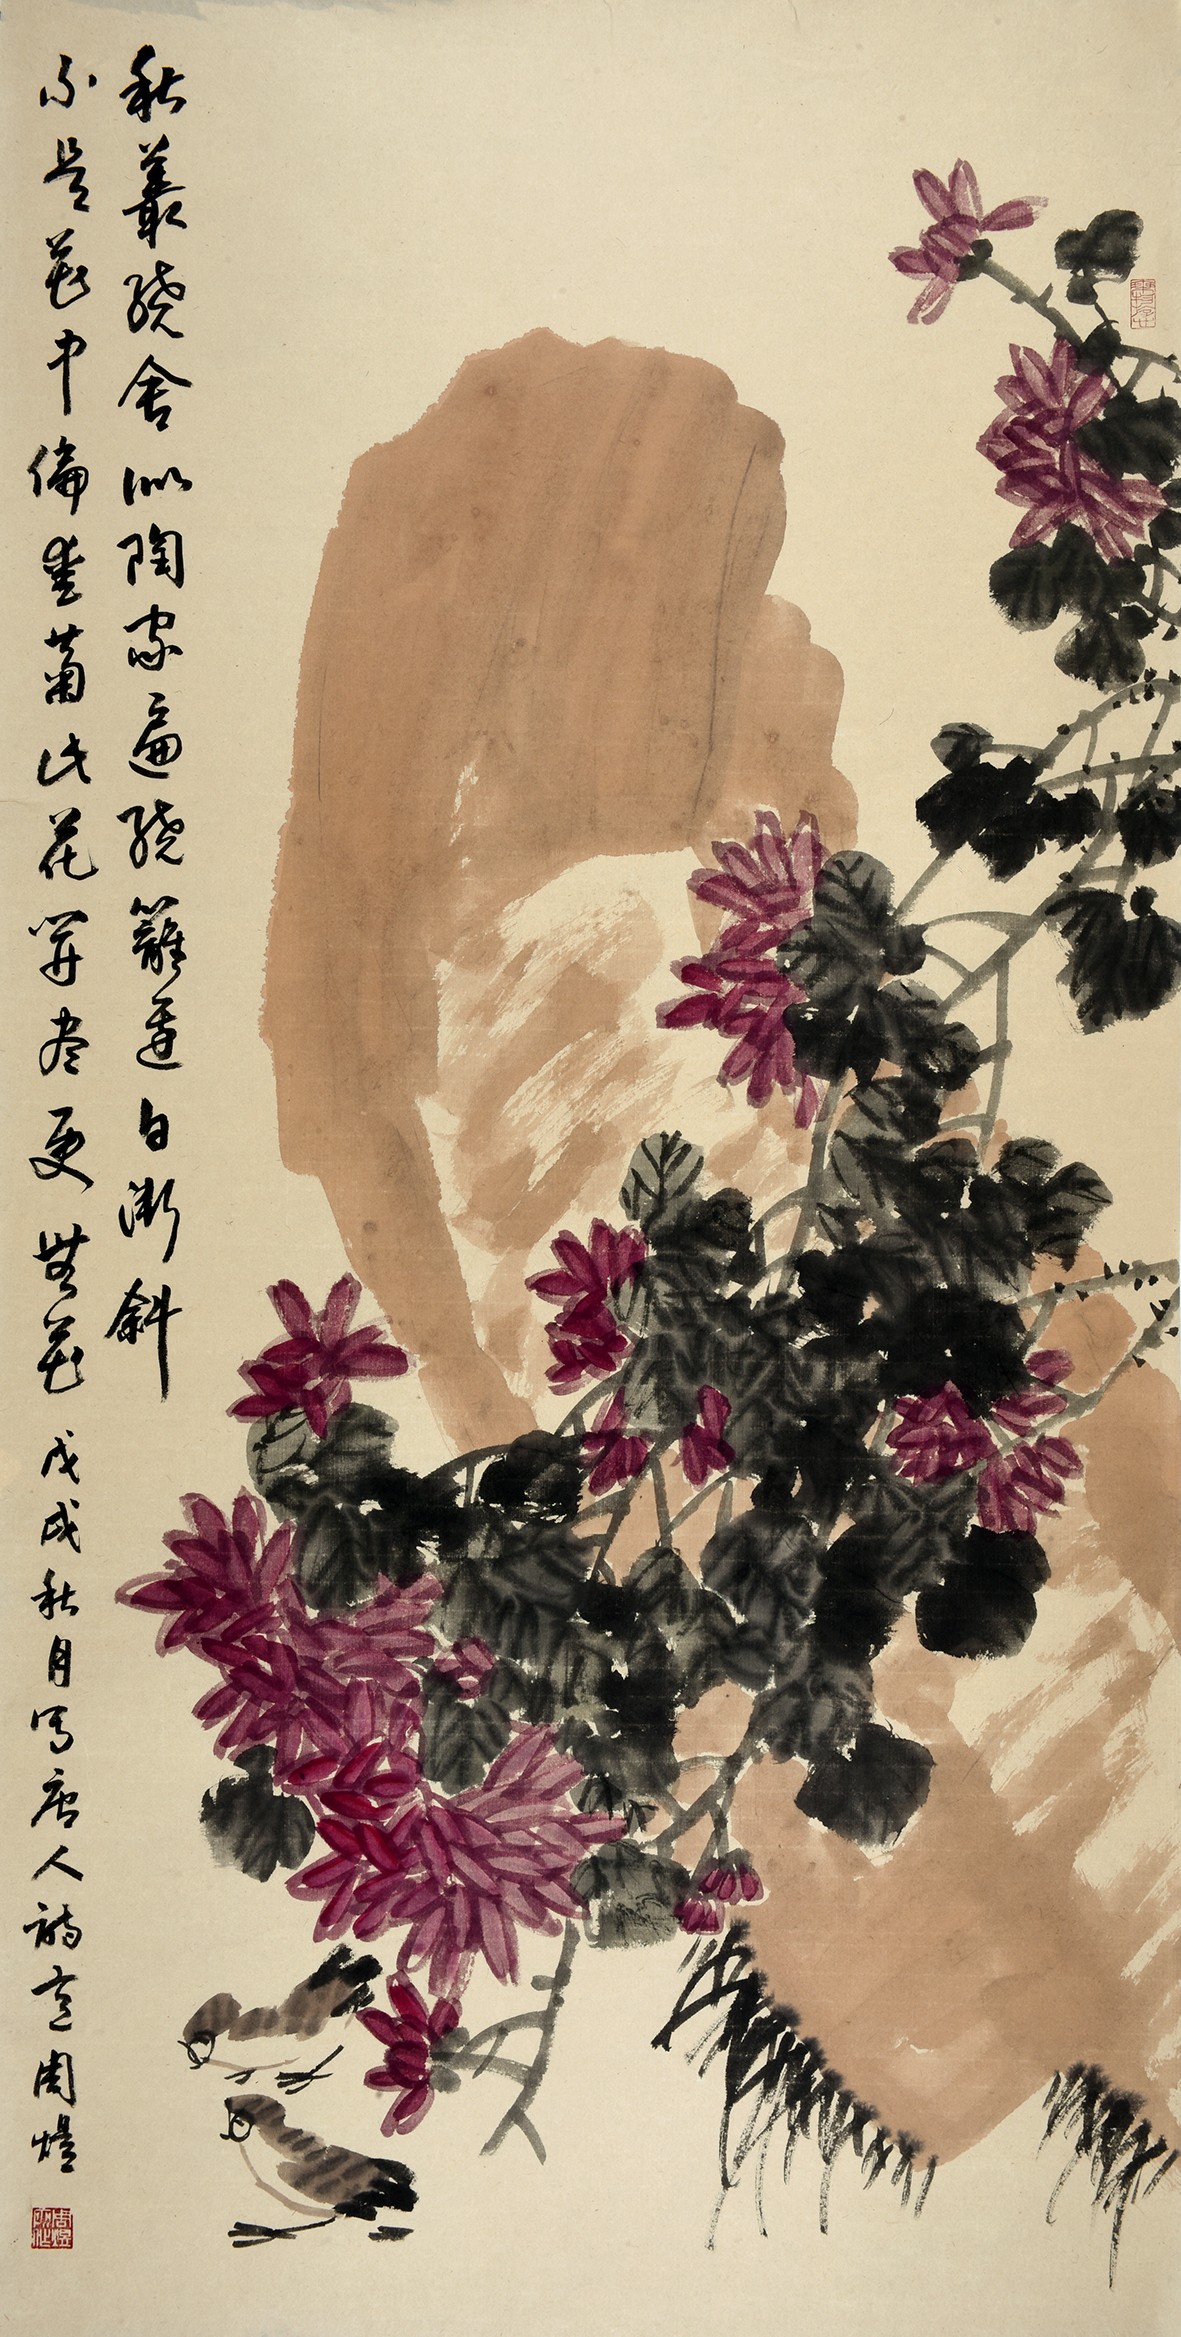 秋叢繞舍似陶家遍繞籬邊日漸斜
不是花中偏愛菊此花開盡更無花 戊戌秋月写唐人詩意周煜
周煜